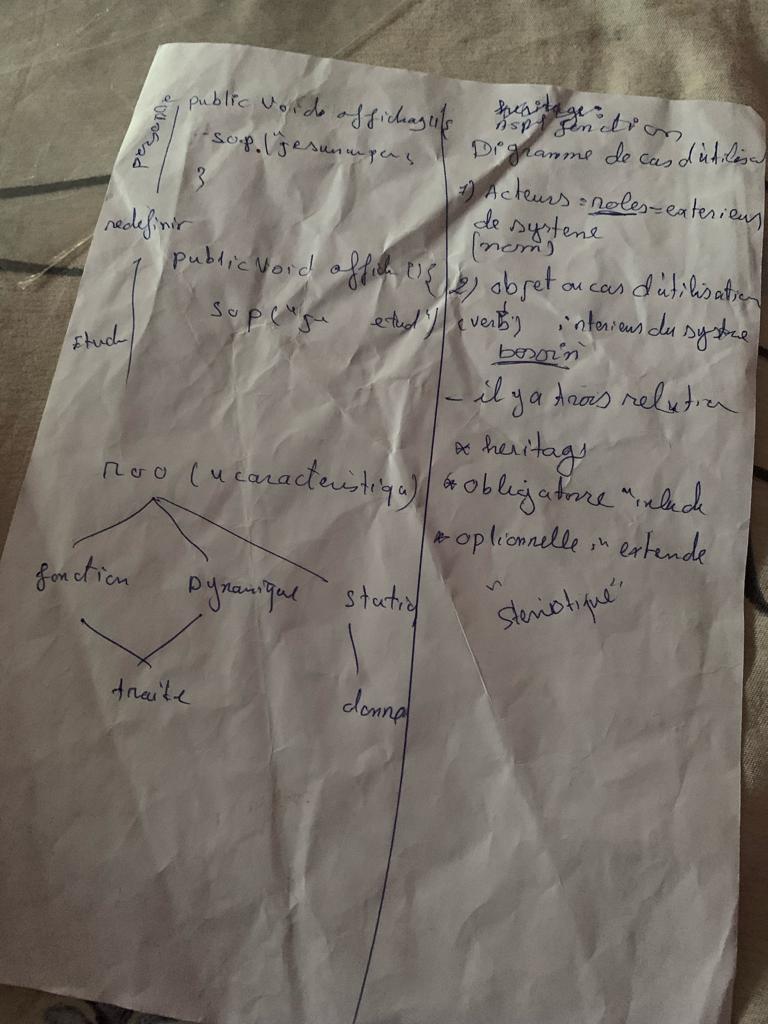 personne
public void affichag(){
sop.("je suis un pers
}
redefinir
public void affich(){
sop("je etud")
Etudi
noo (u caracteristiqu)
fonction Dynamique static
traite donne
heritage:
Aspt fonction
Digramme de cas d'utilisa
1) Acteurs = roles = exterieurs
de systeme
(nom)
2) objet ou cas d'utilisation
(verb) interieus du systme
besoin
- il ya trois relution
* heritags
* obligatoire "inlude
* oplionnelle " extende
"steriotique"